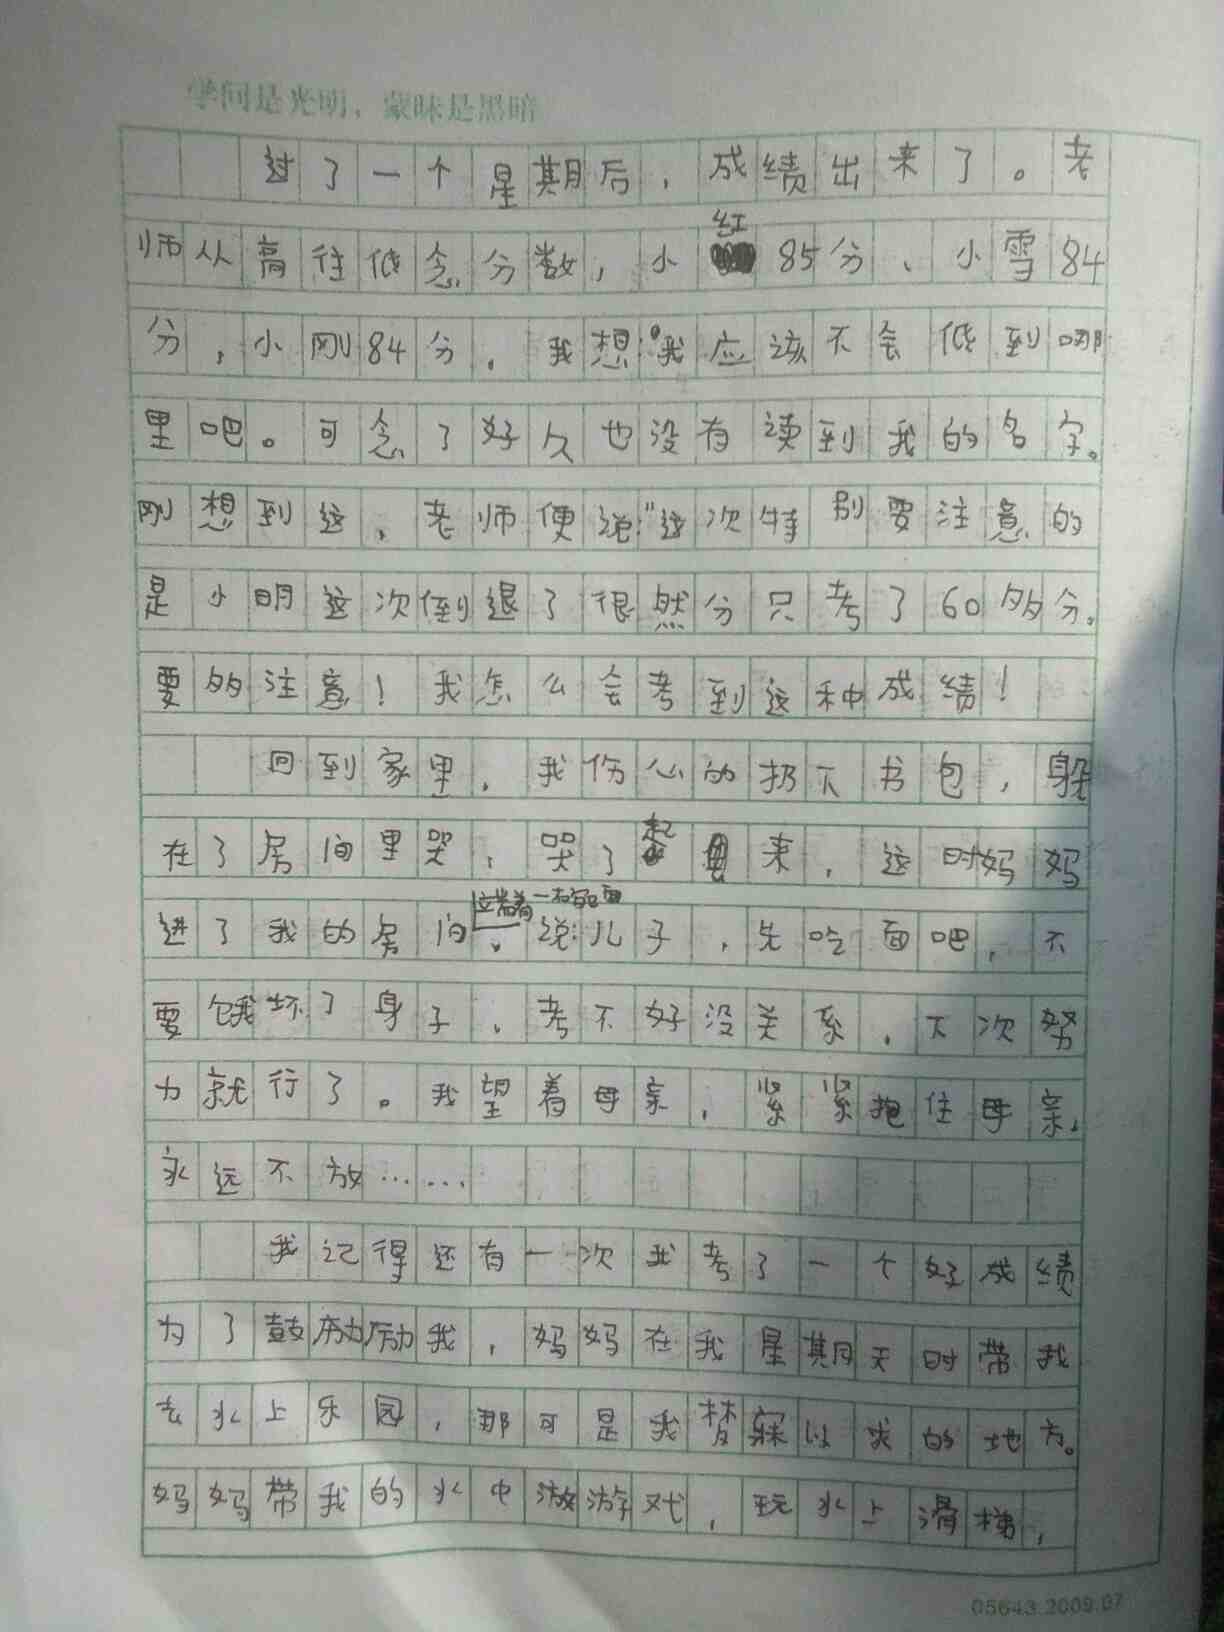 学问是光明，蒙昧是黑暗
过了一个星期后，成绩出来了。老
师从高往低念分数，小红85分、小雪84
分，小刚84分。我想：我应该不会低到哪
里吧。可念了好久也没有读到我的名字。
刚想到这，老师便说："这次特别要注意的
是小明这次倒退了很然分只考了60多分。
要多注意！我怎么会考到这种成绩！
回到家里，我伤心的扔下书包，躲
在了房间里哭，哭了起来，这时妈妈
进了我的房间，端着一碗面说：儿子，先吃面吧，不
要饿坏了身子，考不好没关系，下次努
力就行了。我望着母亲，紧紧抱住母亲，
永远不放……
我记得还有一次我考了一个好成绩
为了鼓励励我，妈妈在我星期天时带我
去水上乐园，那可是我梦寐以求的地方。
妈妈带我的水中游游戏，玩水上滑梯，
05643.2009.07